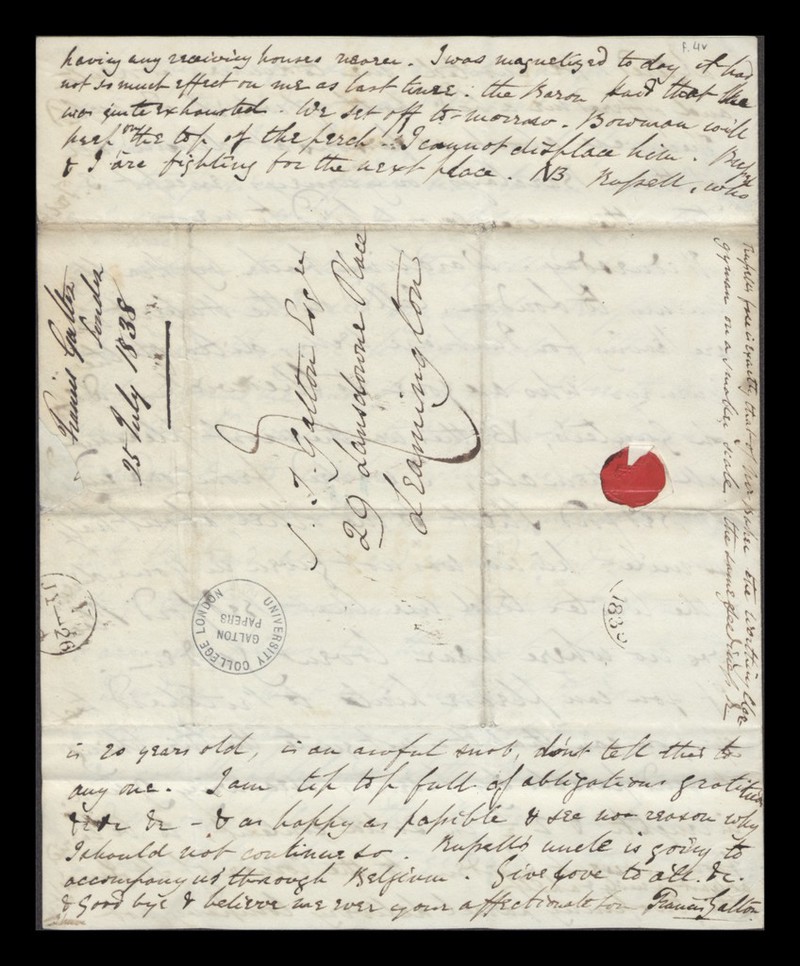 F. 4v
having any receiving houses nearer. I was magnetized to day it had
not so much effect on me as last time: the Baron said that she
was quite exhausted. We set off to-morrow. Bowman will
keep on the top of the perch - I cannot displace him. Rufsell
& I are fighting for the next place. NB Rufsell, who
is 20 years old, is an awful snob, don't tell this to
any one. I am tip top full of obligations gratitude
&c &c &c - & as happy as pofsible & see no reason why
I should not continue so. Rufsell's uncle is going to
accompany us through Belgium. Give love to all &c.
& Good bye & believe me ever your affectionate son Francis Galton
Rufsell's face is exactly that of the
gyman on a smaller scale the same
S. T. Galton Esqre
29 Lansdowne Place
Leamington
Francis Galton
London
25 July 1838
UNIVERSITY COLLEGE LONDON
GALTON
PAPERS
JY 26
183